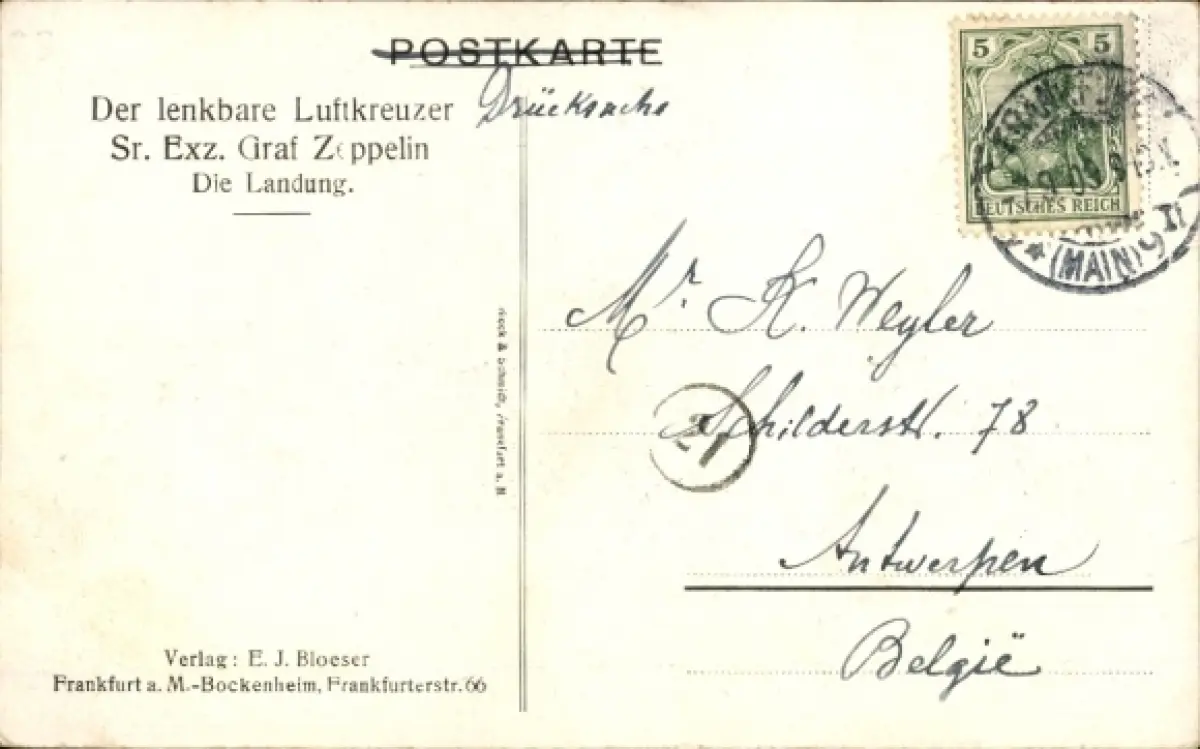 POSTKARTE
Drücksache
Der lenkbare Luftkreuzer
Sr. Exz. Graf Zeppelin
Die Landung.
5 5
DEUTSCHES REICH
FRANKFURT
(MAIN) 9
Mr. K. Weyler
Schilderstr. 78
Antwerpen
België
21
& Schmidt, Frankfurt a. M
Verlag: E. J. Bloeser
Frankfurt a. M.-Bockenheim, Frankfurterstr. 66